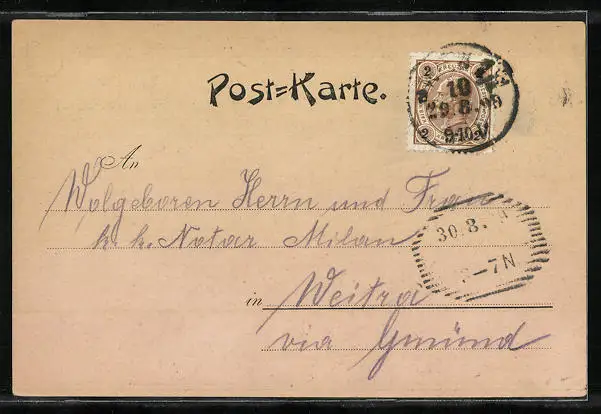 Post=Karte.
2
2
10
29.8.99
An
Wolgeboren Herrn und Frau
k. k. Notar Milan
30.8.
-7N
in Weitra
via Gmünd